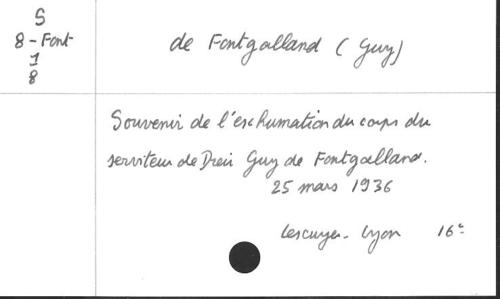 S
8 - Font
1
8
de Fontgalland (Guy)
Souvenir de l'exhumation du corps du
serviteur de Dieu Guy de Fontgalland.
25 mars 1936
Lescuyer - Lyon 16c